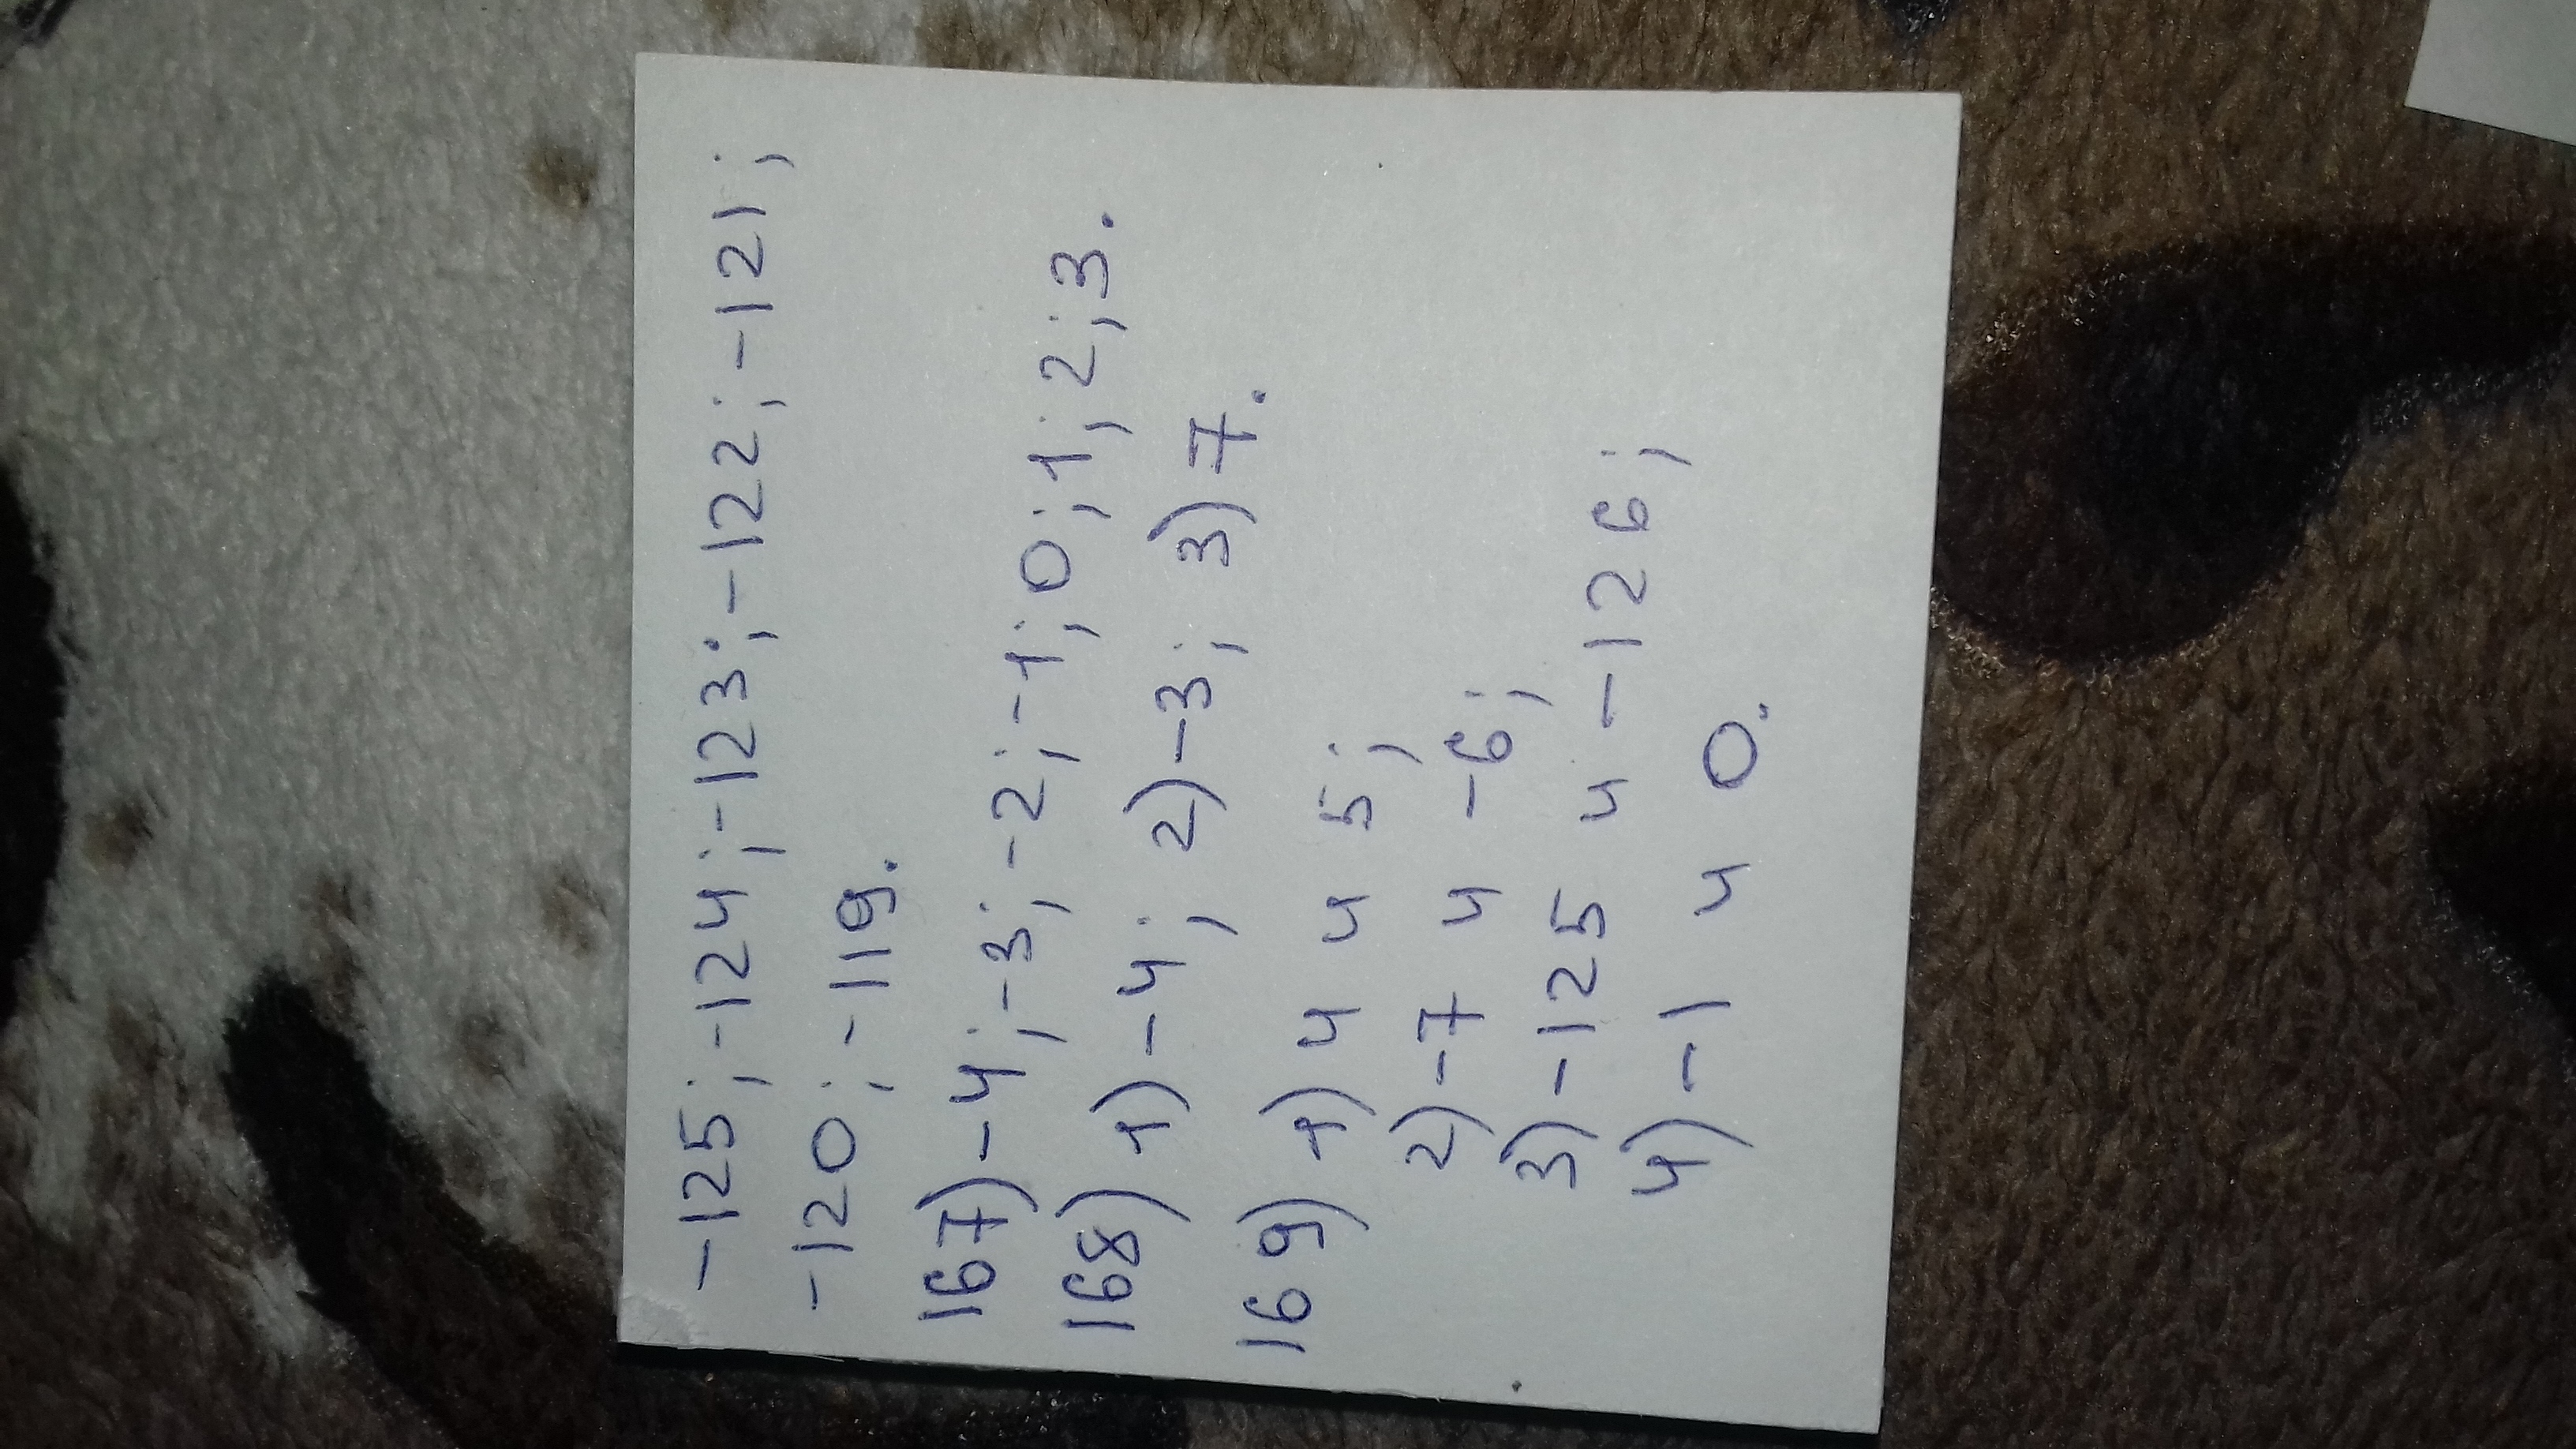 -125; -124; -123; -122; -121;
-120; -119.
167) -4; -3; -2; -1; 0; 1; 2; 3.
168) 1) -4; 2) -3; 3) 7.
169) 1) 4 и 5;
2) -7 и -6;
3) -125 и -126;
4) -1 и 0.